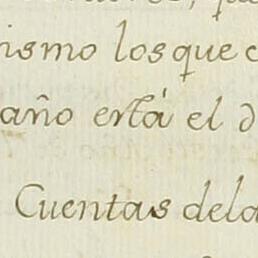 ismo los que
año está el
Cuentas dela